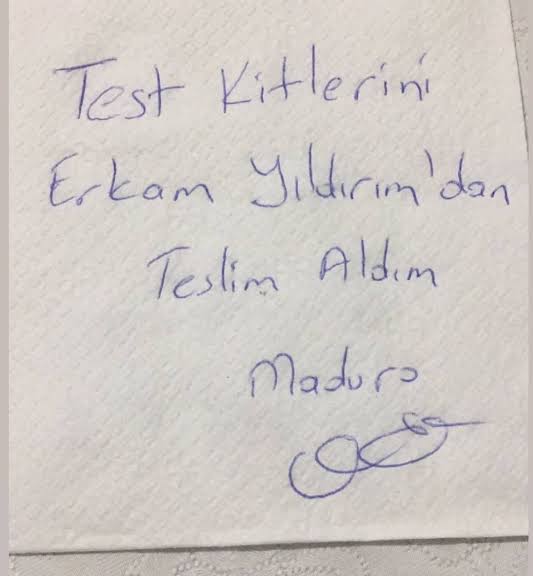 Test Kitlerini
Erkam Yıldırım'dan
Teslim Aldım
Maduro